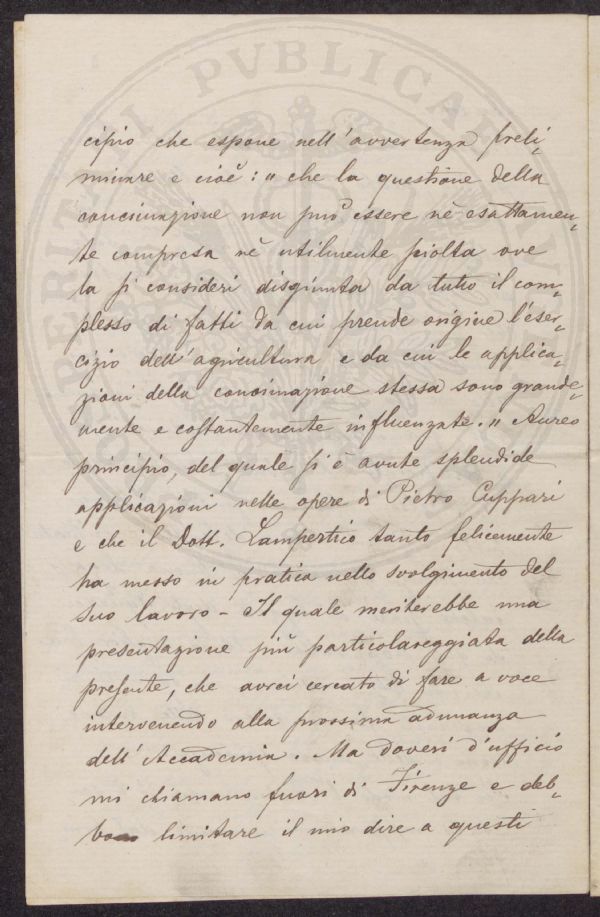 PERITATI PVBLICAE
cipio che espone nell'avvertenza preli-
minare e cioè: " che la questione della
concimazione non può essere nè esattamen-
te compresa nè utilmente sciolta ove
la si consideri disgiunta da tutto il com-
plesso di fatti da cui prende origine l'eser-
cizio dell'agricultura e da cui le applica-
zioni della concimazione stessa sono grande-
mente e costantemente influenzate. " Aureo
principio, del quale si è avute splendide
applicazioni nelle opere di Pietro Cuppari
e che il Dott. Lampertico tanto felicemente
ha messo in pratica nello svolgimento del
suo lavoro - Il quale meriterebbe una
presentazione più particolareggiata della
presente, che avrei cercato di fare a voce
intervenendo alla prossima adunanza
dell'Accademia. Ma doveri d'ufficio
mi chiamano fuori di Firenze e deb-
bo limitare il mio dire a questi